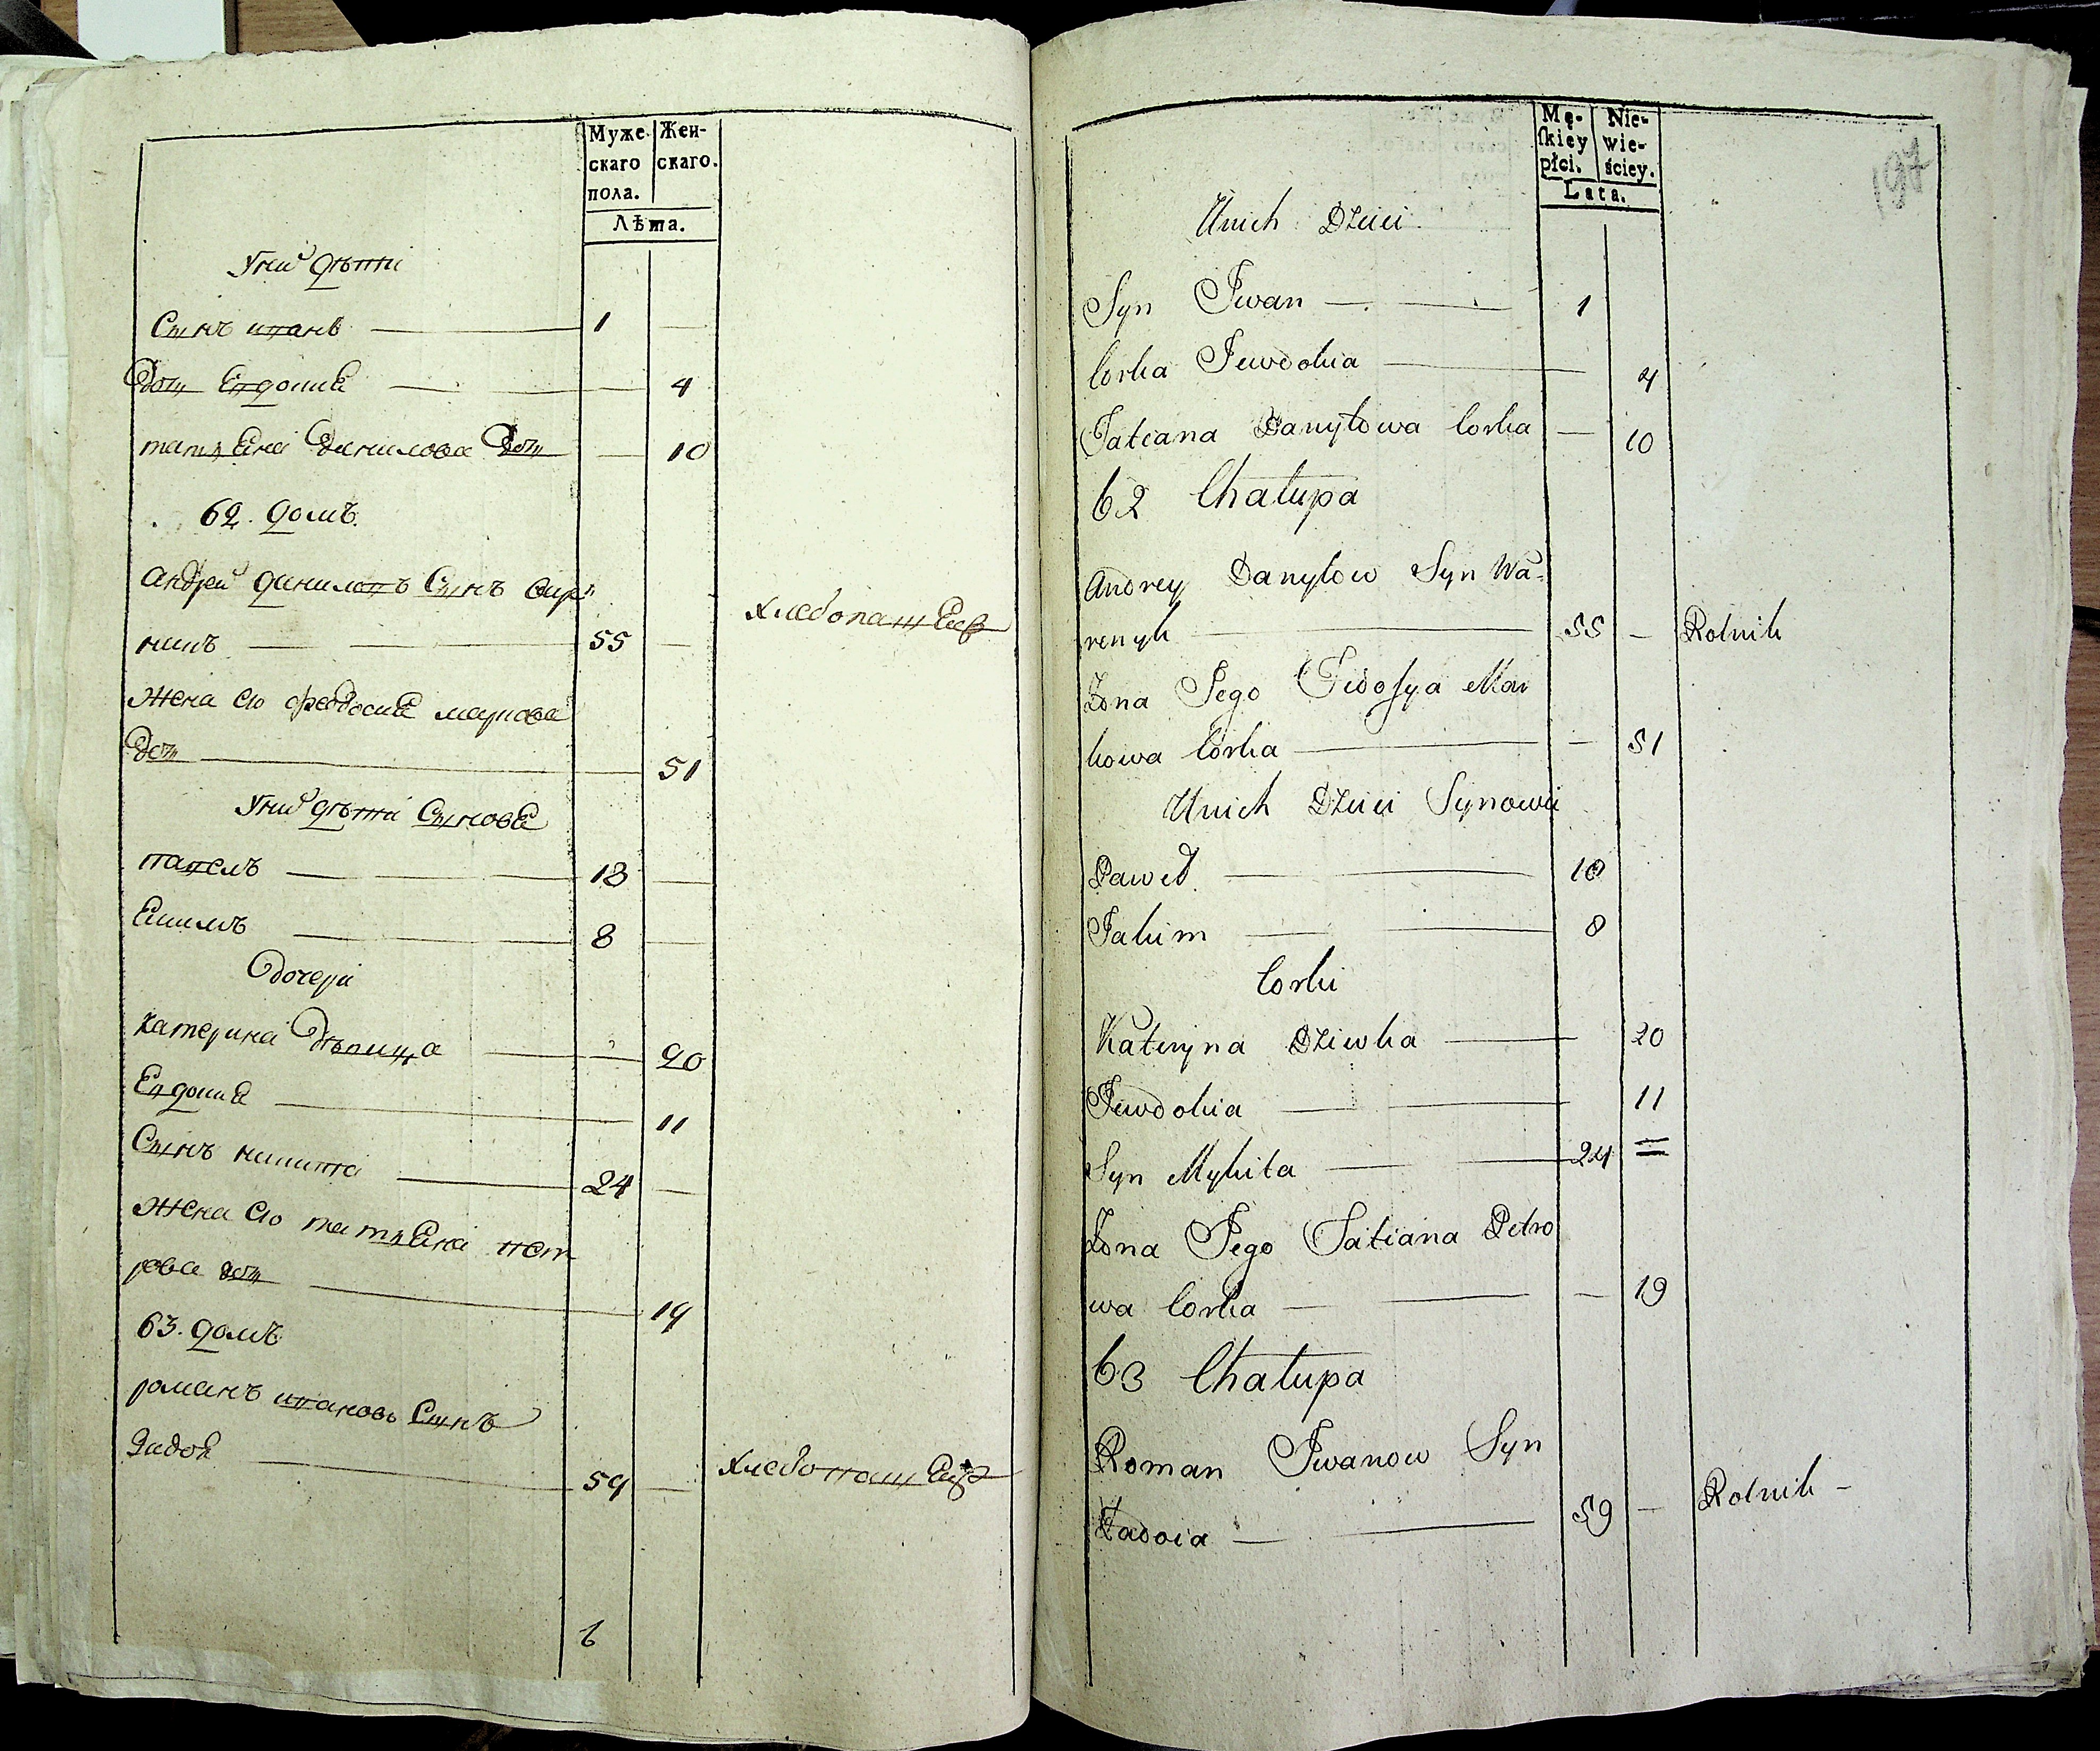 Муже-
скаго
пола.
Жен-
скаго.
Лѣта.
Уних дѣти
Сынъ иванъ 1
Дочь Евдокия 4
татияна Данилова Дочь 10
62. домъ
Андрей данилавъ Сынъ
55 хлебопашецъ
Жена его феодосия маркова
Дочь 51
Уних дѣти Сыновя
павелъ 18
Екимъ 8
Дочери
Катерина Дѣвица 20
Евдокия 11
Сынъ никита 24
Жена его татияна пет
рова дочь 19
63. домъ
романъ ивановъ Сынъ
Задоя 59 хлебопашецъ
6
Mę-
skiey
płci.
Nie-
wie-
ściey.
Lata.
197
Unich Dzieci
Syn Jwan 1
Corka Jewdokia 4
Tatiana Danyłowa Corka 10
62 Chałupa
Andrey Danyłow Syn Wa-
renyk 55 Rolnik
Żona Jego Fedosya Mar
kowa Córka 51
Unich Dzieci Synowie
Paweł 18
Jakim 8
Corki
Kateryna Dziewka 20
Jewdokia 11
Syn Mykita 24
Żona Jego Tatiana Petro
wa Corka 19
63 Chałupa
Roman Jwanow Syn
Zadoia 59 Rolnik